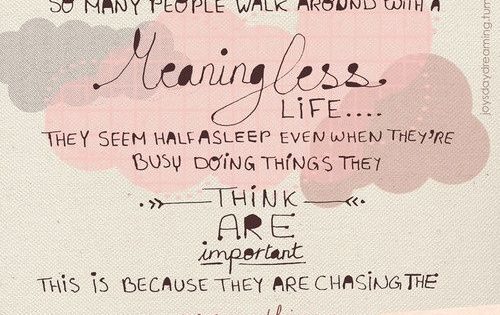 SO MANY PEOPLE WALK AROUND WITH A
Meaningless
LIFE....
THEY SEEM HALF ASLEEP EVEN WHEN THEY'RE
BUSY DOING THINGS THEY
THINK
ARE
important
THIS IS BECAUSE THEY ARE CHASING THE
joysdaydreaming.tum